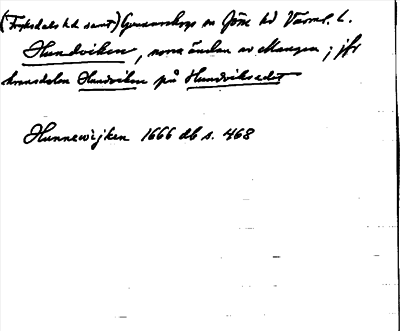 (Fryksdals hd samt) Gunnarskogs sn Jösse hd Värml. l.
Hundviken, norra ändan av Mangen; jfr
kronodelen Hundviken på Hundviksedet
Hunnewijken 1666 db s. 468